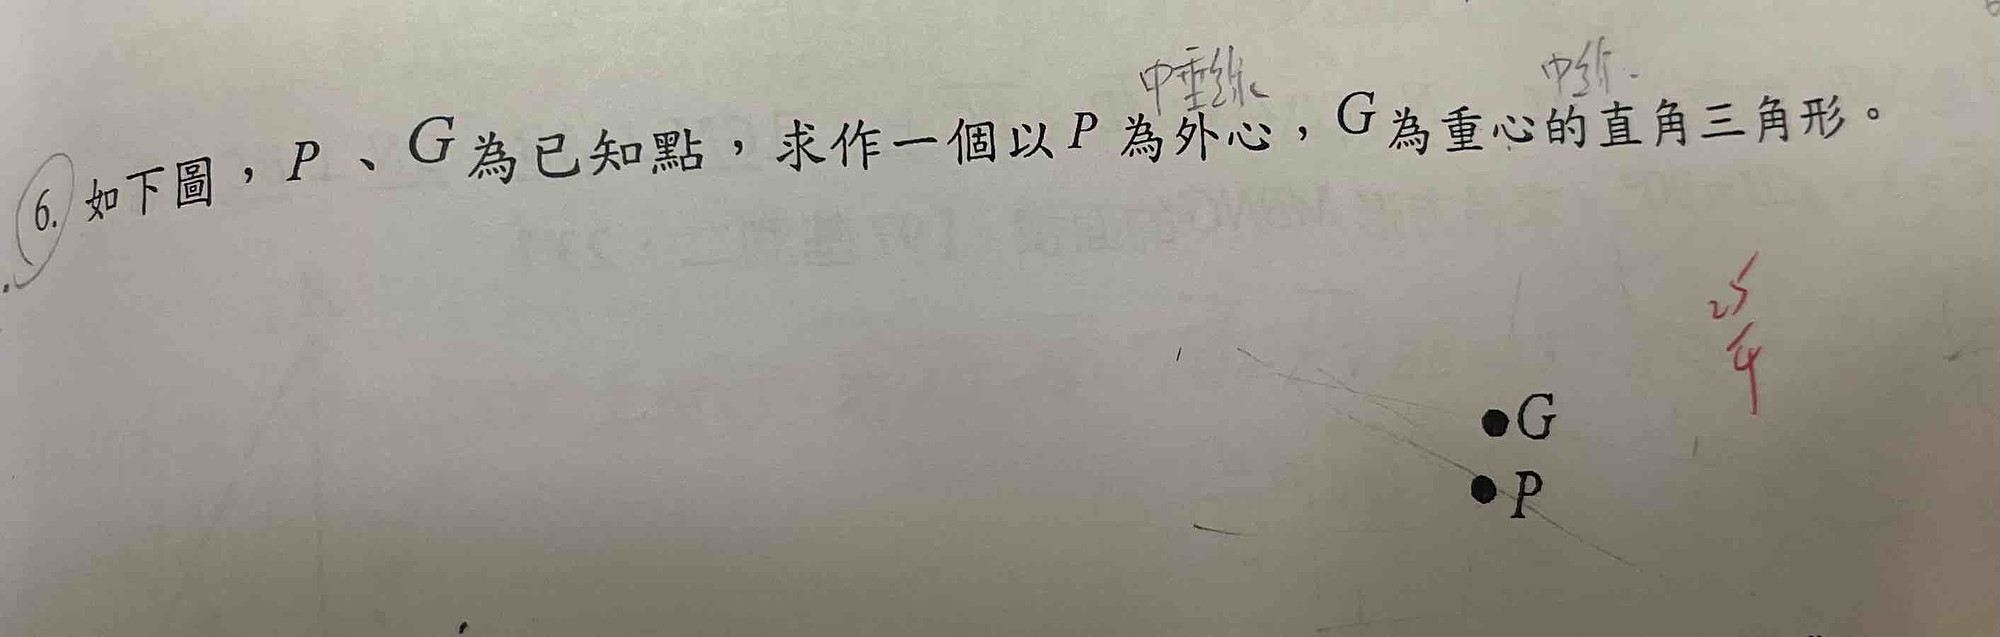 中垂線
中線
6. 如下圖，P、G為已知點，求作一個以P為外心，G為重心的直角三角形。
25
4
G
P